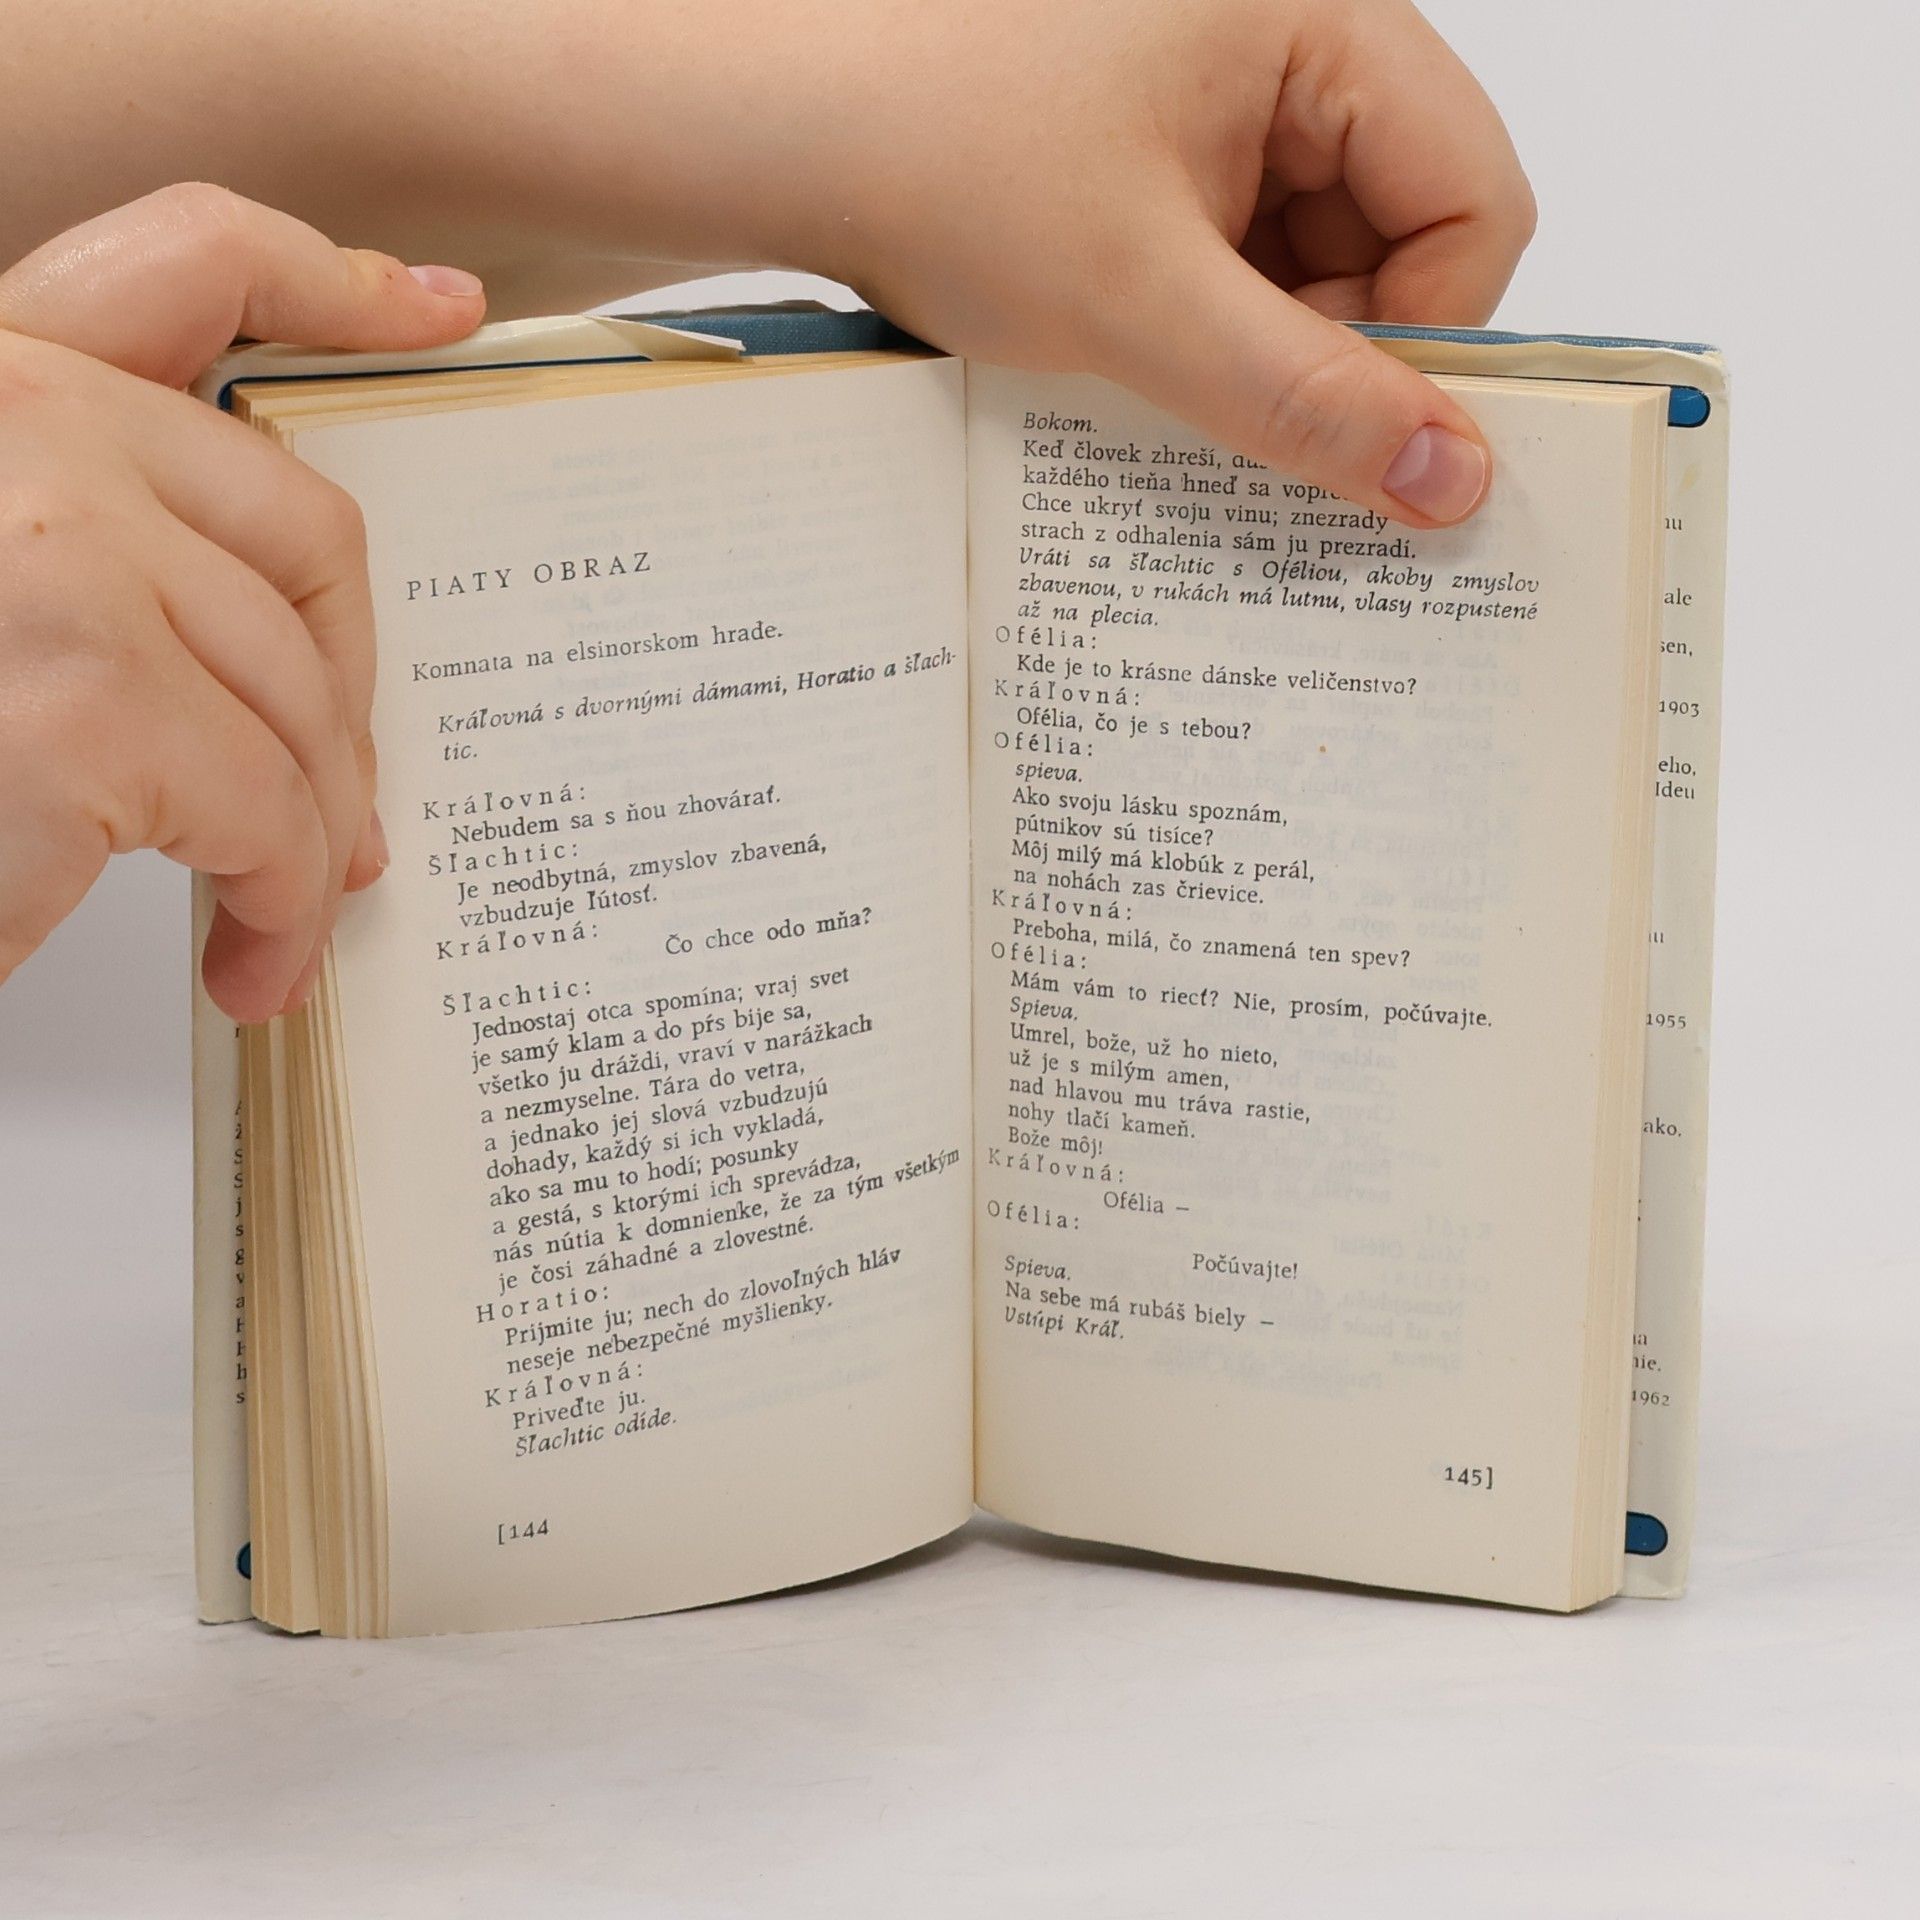 PIATY OBRAZ
Komnata na elsinorskom hrade.
Kráľovná s dvornými dámami, Horatio a šľach-
tic.
Kráľovná:
Nebudem sa s ňou zhovárať.
Šľachtic:
Je neodbytná, zmyslov zbavená,
vzbudzuje ľútosť.
Kráľovná:
Čo chce odo mňa?
Šľachtic:
Jednostaj otca spomína; vraj svet
je samý klam a do pŕs bije sa,
všetko ju dráždi, vraví v narážkach
a nezmyselne. Tára do vetra,
a jednako jej slová vzbudzujú
dohady, každý si ich vykladá,
ako sa mu to hodí; posunky
a gestá, s ktorými ich sprevádza,
nás nútia k domnienke, že za tým všetkým
je čosi záhadné a zlovestné.
Horatio:
Prijmite ju; nech do zlovoľných hláv
neseje nebezpečné myšlienky.
Kráľovná:
Priveďte ju.
Šľachtic odíde.
[144
Bokom.
Keď človek zhreší,
každého tieňa hneď sa
Chce ukryť svoju vinu; znezrady
strach z odhalenia sám ju prezradí.
Vráti sa šľachtic s Oféliou, akoby zmyslov
zbavenou, v rukách má lutnu, vlasy rozpustené
až na plecia.
Ofélia:
Kde je to krásne dánske veličenstvo?
Kráľovná:
Ofélia, čo je s tebou?
Ofélia:
spieva.
Ako svoju lásku spoznám,
pútnikov sú tisíce?
Môj milý má klobúk z perál,
na nohách zas črievice.
Kráľovná:
Preboha, milá, čo znamená ten spev?
Ofélia:
Mám vám to riecť? Nie, prosím, počúvajte.
Spieva.
Umrel, bože, už ho nieto,
už je s milým amen,
nad hlavou mu tráva rastie,
nohy tlačí kameň.
Bože môj!
Kráľovná:
Ofélia –
Ofélia:
Počúvajte!
Spieva.
Na sebe má rubáš biely –
Vstúpi Kráľ.
145]
ale
1903
1955
1962